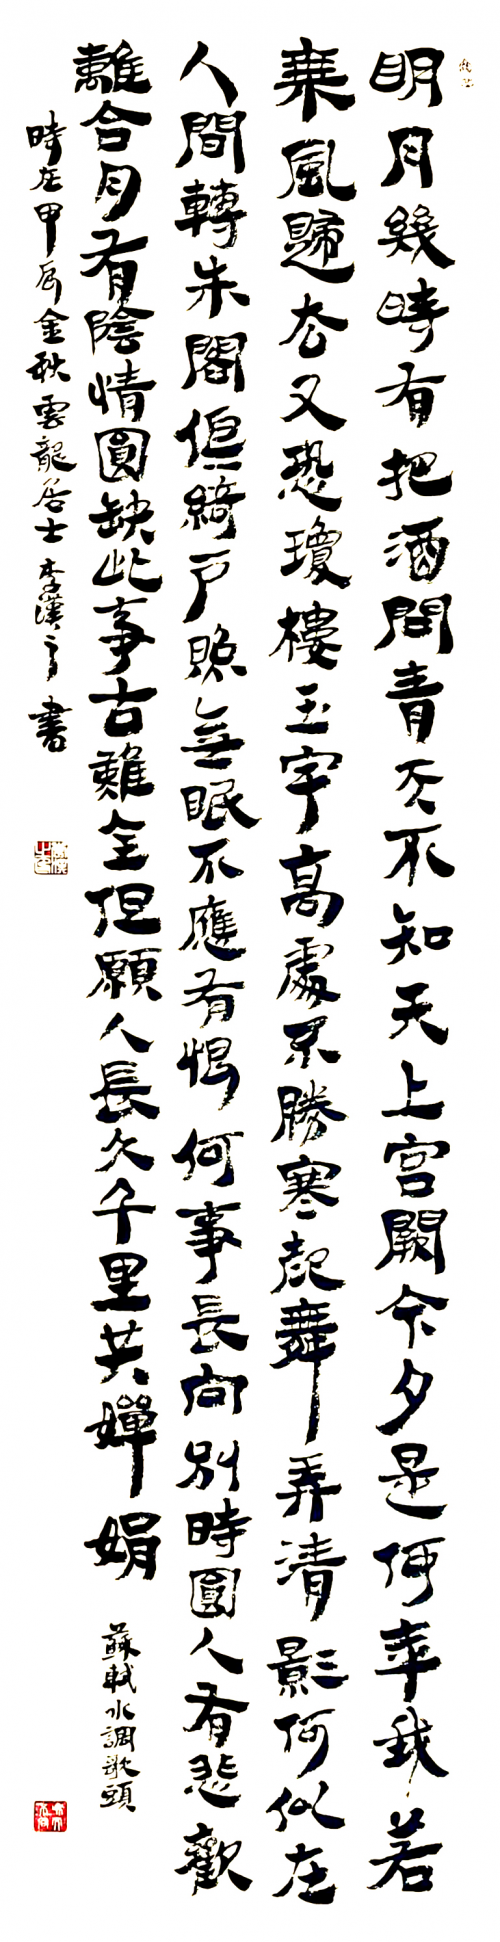 明月幾時有把酒問青天不知天上宮闕今夕是何年我若
乘風歸去又恐瓊樓玉宇高處不勝寒起舞弄清影何似在
人間轉朱閣低綺戶照無眠不應有恨何事長向別時圓人有悲歡
離合月有陰情圓缺此事古難全但願人長久千里共嬋娟
蘇軾水調歌頭
時在甲辰金秋雲龍居士李漢之書